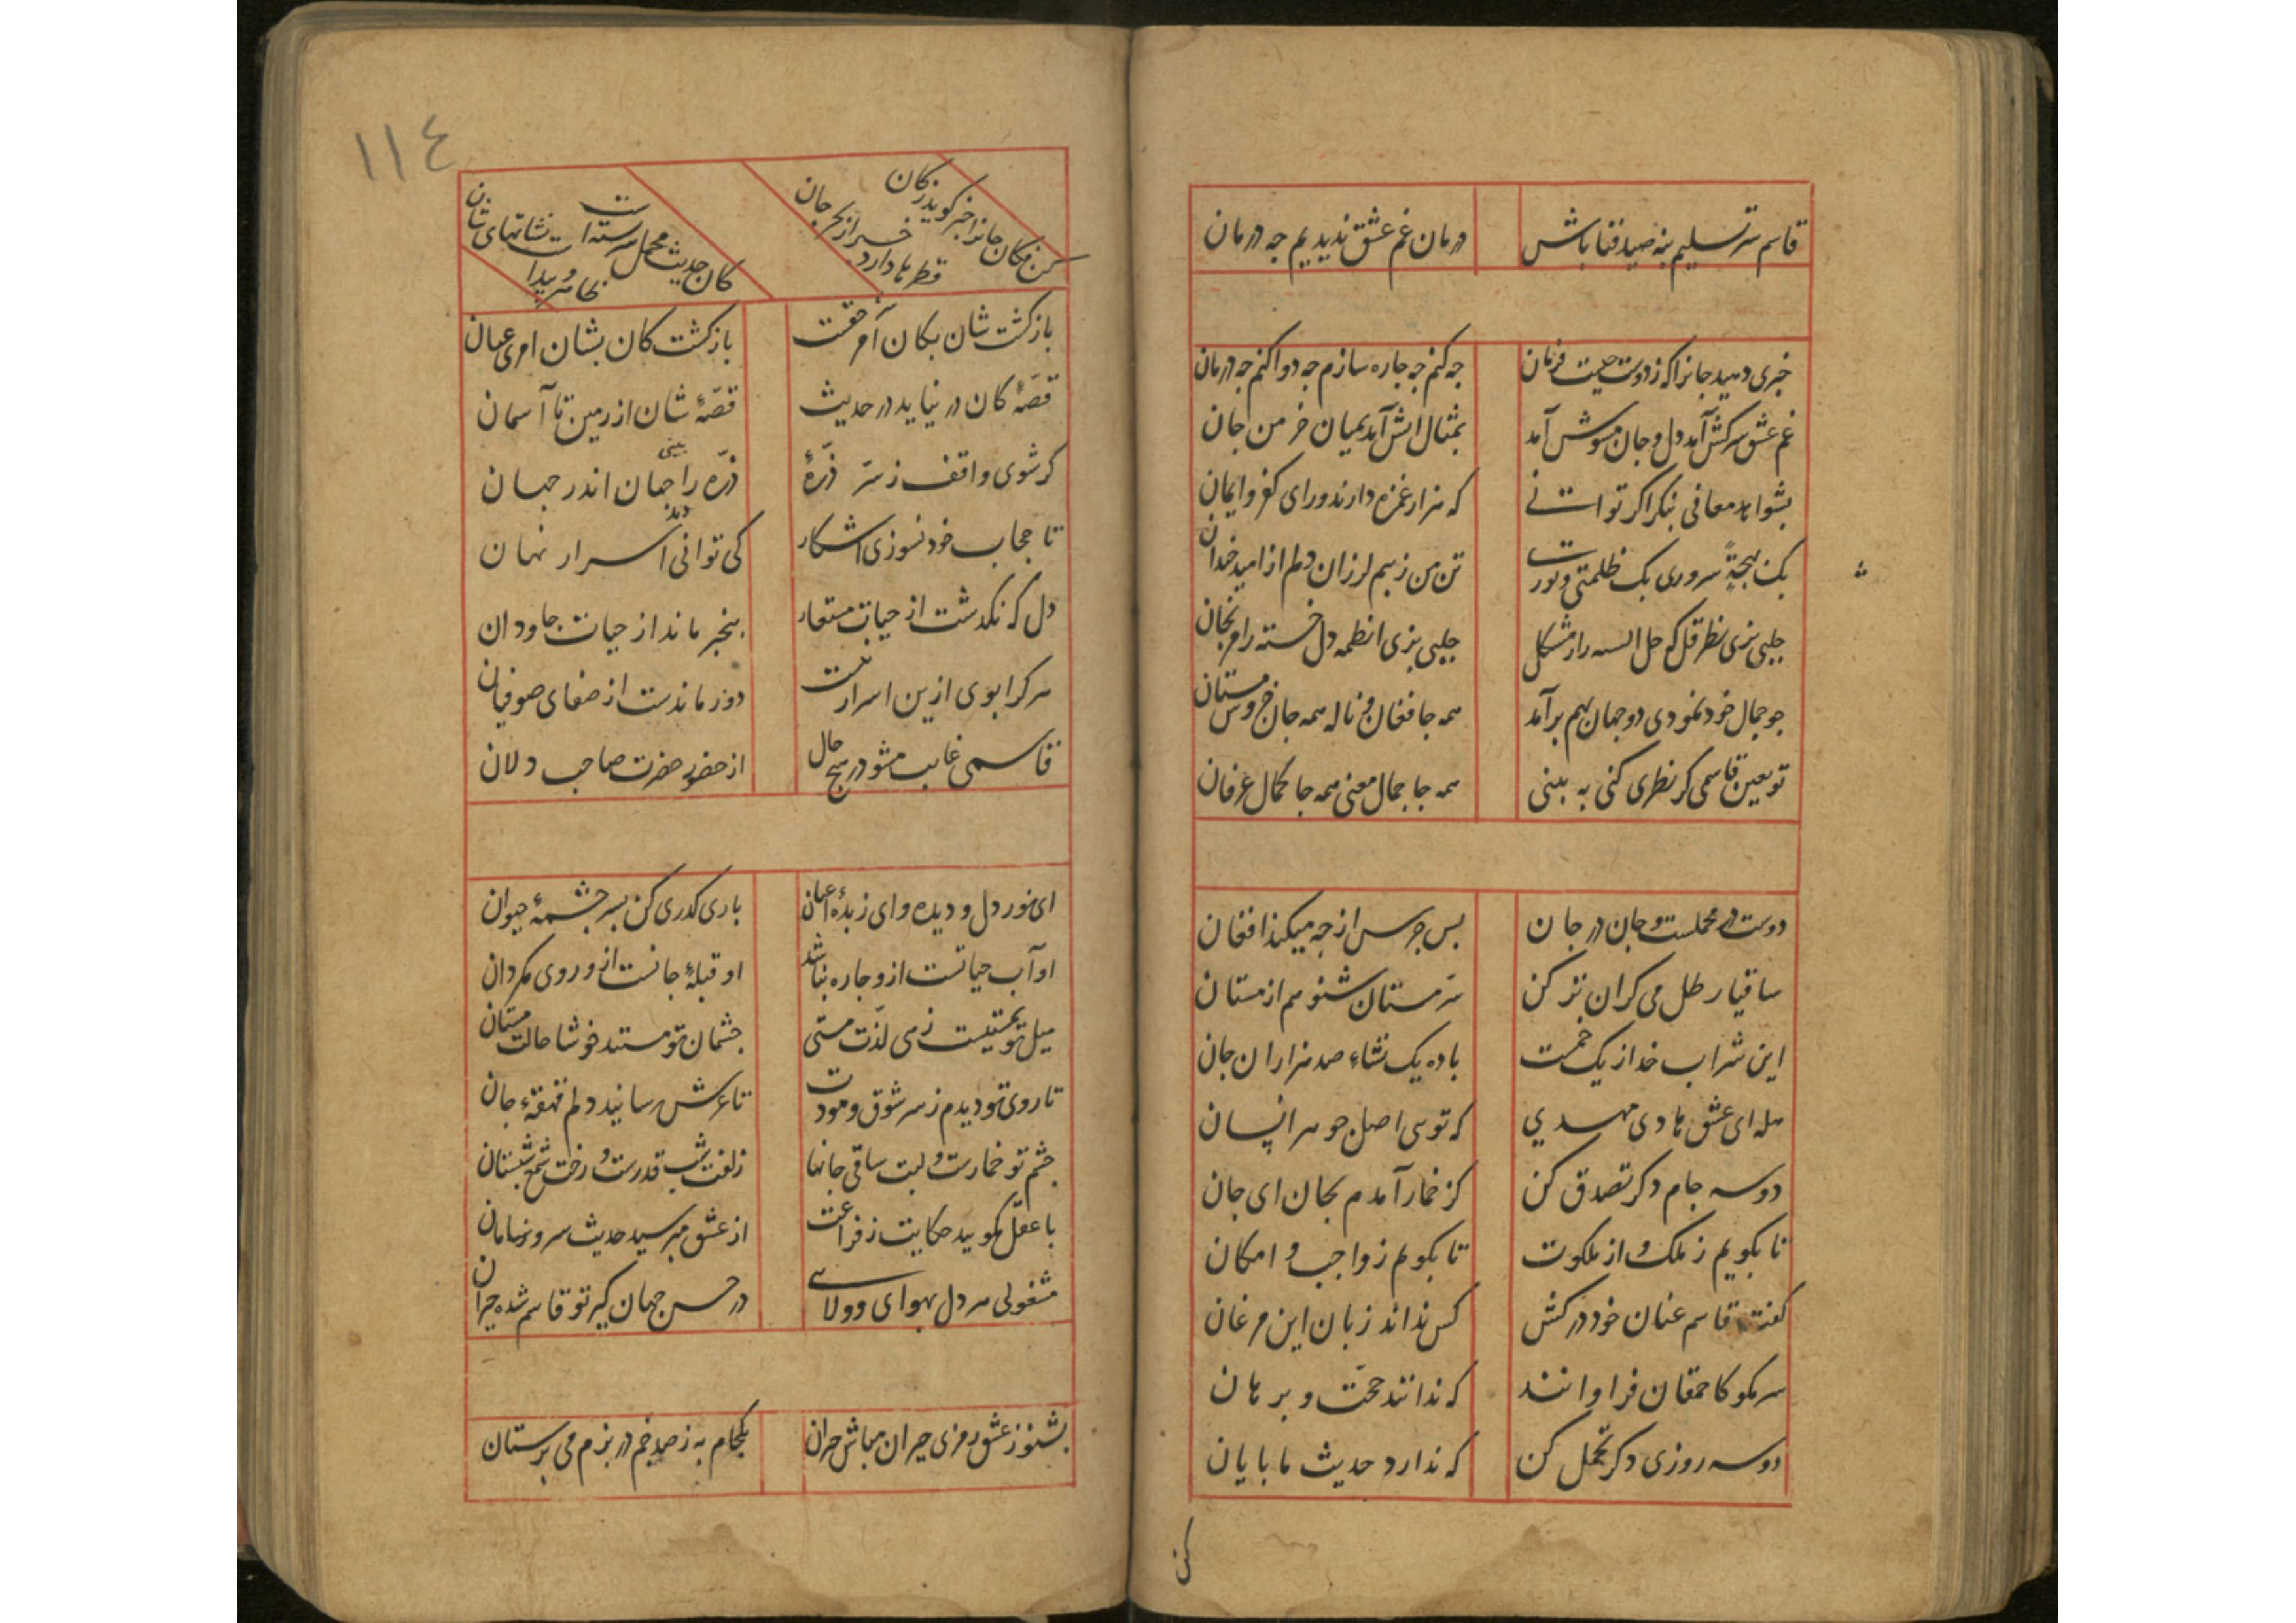 قاسم سر تسلیم بنه صید فنا باش
درمان غم عشق ندیدیم چه درمان
خبری دهید جانرا که ز دوست چیست فرمان
چه کنم چه چاره سازم چه دوا کنم چه درمان
غم عشق سرکش آمد دل و جان مشوش آمد
بمثال آتش آمد بمیان خرمن جان
بشو معافی بنکر اکر توانی
که هزار غمزه دارند ورای کفر و ایمان
یک بهجة سروری یک ظلمتی و نورت
تن من ز بیم لرزان دلم از امید خندان
جلبی بزی نظر قل که حل مشکل
جلبی بزی دل خسته را مرنجان
جو جمال خود نمودی دو جهان بهم برآمد
همه جا فغان و ناله همه جا خروش مستان
تو بعین قاسمی کر نظری کنی به بینی
همه جا جمال معنی همه جا کمال عرفان
دوست در محملست و جان در جان
بس جرس از چه میکند افغان
ساقیا رطل می کران تر کن
سر مستان شنو هم از مستان
این شراب خدا ز یک خمست
باده یک نشاء صد هزاران جان
هله ای عشق هادی مهدی
که توی اصل جوهر انسان
دو سه جام دکر تصدق کن
کز خمار آمدم بجان ای جان
تا بکویم ز ملک و از ملکوت
تا بکویم ز واجب و امکان
کفت قاسم عنان خود درکش
کس نداند زبان این مرغان
سر مکو کاحمقان فراوانند
که ندانند حجت و برهان
دو سه روزی دکر تحمل کن
که ندارد حدیث ما پایان
کن
١١٤
کن مکان جانرا خبر کوید ز کان
قطرها دارد خبر از بحر جان
کان حدیث مجمل سربسته است
نشانهای شان پیدا
باز کشت شان بکان آمر حقست
باز کشت کان بشان امری عیان
قصهٔ کان در نیاید در حدیث
قصهٔ شان از زمین تا آسمان
کر شوی واقف ز سر ذرهٔ
ذره را بینی جهان اندر جهان
تا حجاب خود نسوزی آشکار
کی توانی دید اسرار نهان
دل که نکذشت از حیات مستعار
بیخبر ماند از حیات جاودان
هر کرا بوی ازین اسرار نیست
دور ماندست از صفای صوفیان
قاسمی غایب مشو در هیچ حال
از حضور حضرت صاحب دلان
ای نور دل و دیده و ای زبدهٔ اعیان
باری کذری کن بسر چشمهٔ حیوان
او آب حیاتست ازو چاره نباشد
او قبلهٔ جانست ازو روی مکردان
میل تو بمستیست زهی لذت مستی
چشمان تو مستند خوشا حالت مستان
تا روی تو دیدم ز سر شوق و مودت
تا عرش رسانید دلم قهقهٔ جان
چشم تو خمارست و لبت ساقی جانها
زلفت شب قدرست و رخت شمع شبستان
با عقل مکویید حکایت ز فراغت
از عشق مپرسید حدیث سر و سامان
مشغولی هر دل بهوای و ولای
در حسن جهان کیر تو قاسم شده حیران
بشنو ز عشق رمزی حیران مباش حیران
یکجام به ز صد خم در بزم می پرستان